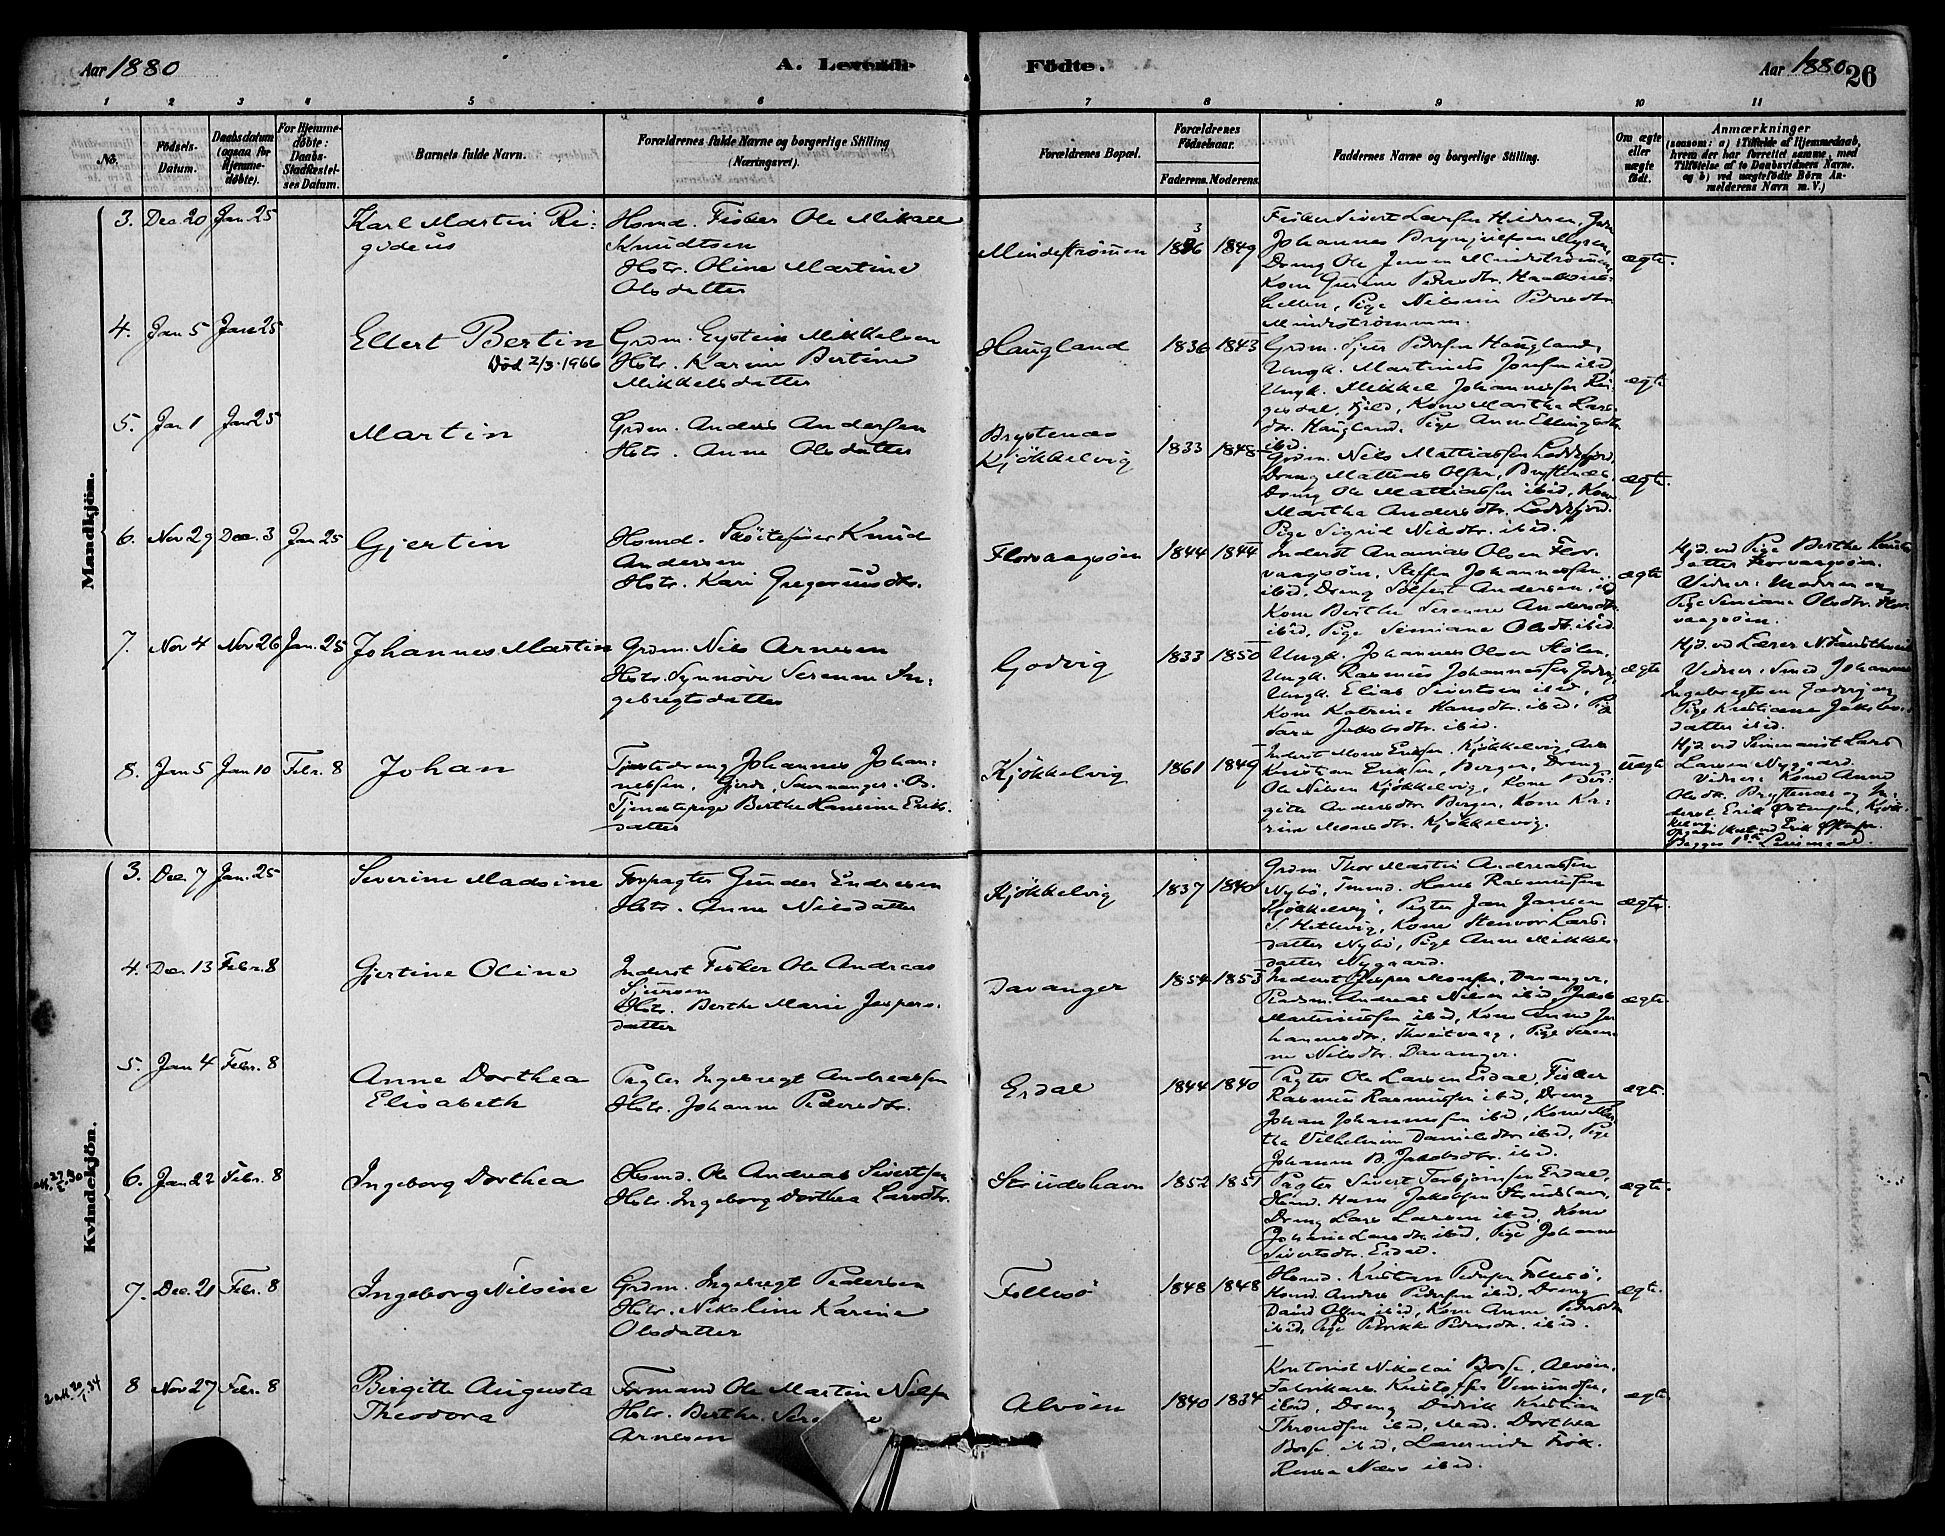 Aar 1880
A. Levendi
Födte.
Aar 1880
26
1 2 3 4 5 6 7 8 9 10 11
No.
Födsels-
Datum.
Daabsdatum
(ogsaa for
Hjemme-
døbte).
For Hjemme-
døbte:
Daabs-
Stadfæstel-
ses Datum.
Barnets fulde Navn.
Forældrenes fulde Navne og borgerlige Stilling
(Næringsvei).
Forældrenes Bopæl.
Forældrenes
Födselsaar.
Faderens. Moderens.
Faddernes Navne og borgerlige Stilling.
Om ægte
eller
uægte
født.
Anmærkninger
(saasom: a) i Tilfælde af Hjemmedaab,
hvem der har forrettet samme, med
Tilföielse af to Daabsvidners Navne.
og b) ved uægtefödte Börn An-
melderens Navn m. V.)
Mandkjön.
3. Dec 20 Jan 25
Karl Martin Ri-
gideus
Hsmd. Fisker Ole Mikael
Knudtsen
Hstr. Oline Martine
Olsdatter
Mindestrømmen
3
1846 1849
Fisker Sivert Larsen
Johannes Brynjulfsen Myren,
Dreng Ole Jensen Mindestrømmen,
Kone Gurine Pedersdtr.
Pige Nilsine Pedersdtr.
Mindestrømmen.
ægte.
4. Jan 5 Jan 25
Ellert Bertin
Død 2/3.1966
Grdm. Eystein Mikkelsen
Hstr. Karine Bertine
Mikkelsdatter
Haugland
1836 1843
Grdm. Sjur Pedersen Haugland,
Ungk. Martinus Josefsen ibid,
Ungk. Mikkel Johannessen
Kone Martha Lars-
dtr. Haugland, Pige Anne Ellingsdtr.
ibid.
ægte
5. Jan 1 Jan 25
Martin
Grdm. Anders Andersen
Hstr. Anne Olsdatter
Brystenæs
Kjökkelvig
1833 1848
Grdm. Nils Mathiassen Loddefjord,
Dreng Mathias Olsen, Brystenæs,
Dreng Ole Mathiassen ibid, Kone
Martha Andersdtr. Loddefjord.
Pige Sigrid Nilsdtr. ibid.
ægte.
6. Nov 29 Dec. 3 Jan 25
Gjertin
Hsmd. Skøitefører Knud
Andersen
Hstr. Kari Gregoriusdtr.
Florvaagsøen
1844 1844
Inderst Ananias Olsen Flor-
vaagsøen, Steffen Johannessen
ibid, Dreng Solfest Andersen, ibid
Kone Berthe Serenne Andersdtr.
ibid, Pige Simiane Olsdtr. ibid
ægte
Hjd. ved Pige Berthe Knuds
datter Florvaagsøen.
Vidner: Moderen og
Pige Simiane Olsdtr. Flor-
vaagsøen.
7. Nov 4 Nov 26 Jan. 25
Johannes Martin
Grdm. Nils Arnesen
Hstr. Synnöve Serenne In-
gebregtsdatter
Godvig
1833 1850
Ungk. Johannes Olsen Stölen,
Ungk. Rasmus Johannessen Godvig
Ungk. Elias Sivertsen ibid,
Kone Katrine Hansdtr. ibid, Pige
Sara Jakobsdtr. ibid.
ægte
Hjd. ved Lærer N.
Vidner: Smed Johannes
Ingebregtsen Godvig og
Pige Kristiane Jakobs-
datter ibid.
8. Jan 5 Jan 10 Febr. 8
Johan
Tjenstedreng Johannes Johan-
nessen, Gjerde, Samnanger. Os.
Tjenstepige Berthe Hansine Eriks-
datter
Kjökkelvig
1861 1849
Inderst Mons Eriksen, Kjökkelvig, Arb.
Kristian Eriksen, Bergen, Dreng
Ole Nilsen Kjökkelvig, Kone Bir-
gitte Andersdtr. Bergen, Kone Ka-
rine Monsdtr. Kjökkelvig.
uægte
Hjd. ved Seminarist Lars
Larsen Nygaard.
Vidner: Kone Anne
Olsdtr. Brystenæs og In-
derst Erik Østensen, Kjök-
kelvig.
Begges 1ste Leiermaal.
Kvindekjön.
3. Dec. 7 Jan. 25
Severine Madsine
Forpagter Gunder Endresen
Hstr. Anne Nilsdatter
Kjökkelvig
1837 1840
Grdm. Thor Martin Andreassen
Nybö, Tmmd. Hans Rasmussen
Kjökkelvig, Pagter Jan Jansen
S. Hetlevig, Kone Stenvor Lars-
datter Nybö, Pige Anne Mikkels-
datter Nygaard.
ægte.
4. Dec. 13 Febr. 8
Gjertine Oline
Inderst Fisker Ole Andreas
Sjursen
Hstr. Berthe Marie Jespers-
datter
Davanger
1854 1853
Inderst Jesper Monsen, Davanger,
Andreas Nilsen ibid, Jakob
Martinussen ibid, Kone Anne Jo-
hannesdtr. Thveitvaag, Pige Seren-
ne Nilsdtr. Davanger.
ægte.
5. Jan 4 Febr. 8
Anne Dorthea
Elisabeth
Pagter Ingebregt Andreassen
Hstr. Johanne Pedersdtr.
Erdal
1844 1840
Pagter Ole Larsen Erdal, Fisker
Rasmus Rasmussen ibid, Dreng
Johan Johannessen ibid, Kone Mar-
tha Vilhelmine Danielsdtr. ibid, Pige
Johanne B. Jakobsdtr. ibid.
ægte.
6. Jan 22 Febr. 8
Ingeborg Dorthea
Hsmd. Ole Andreas Sivertsen
Hstr. Ingeborg Dorthea Larsdtr.
Strudshavn
1852 1851
Pagter Sivert Torbjørnsen Erdal,
Hsmd. Hans Jakobsen Strudshavn,
Dreng Lars Larsen ibid, Kone
Johanne Larsdtr. ibid, Pige Johanne
Sivertsdtr. Erdal.
ægte.
7. Dec. 21 Febr. 8
Ingeborg Nilsine
Grdm. Ingebregt Pedersen
Hstr. Nikoline Karine
Olsdatter
Follesö
1848 1848
Hsmd. Kristian Pedersen Follesö,
Hsmd. Anders Pedersen ibid, Dreng
David Olsen ibid, Kone Anne Pedersdtr.
ibid, Pige Pedrikke Pedersdtr. ibid.
ægte.
8 Nov 27 Febr. 8
Birgitte Augusta
Theodora
Formand Ole Martin Nilsen
Hstr. Berthe
Arnesen
Alvöen
1840 1834
Kontorist Nikolai Borse, Alvöen,
Fabrikarb. Kristoffer Vemundsen,
ibid, Dreng Didrik Kristian
Throndsen ibid, Mad. Dorthea
Borse ibid, Lærerinde Frøk.
Næss ibid.
ægte